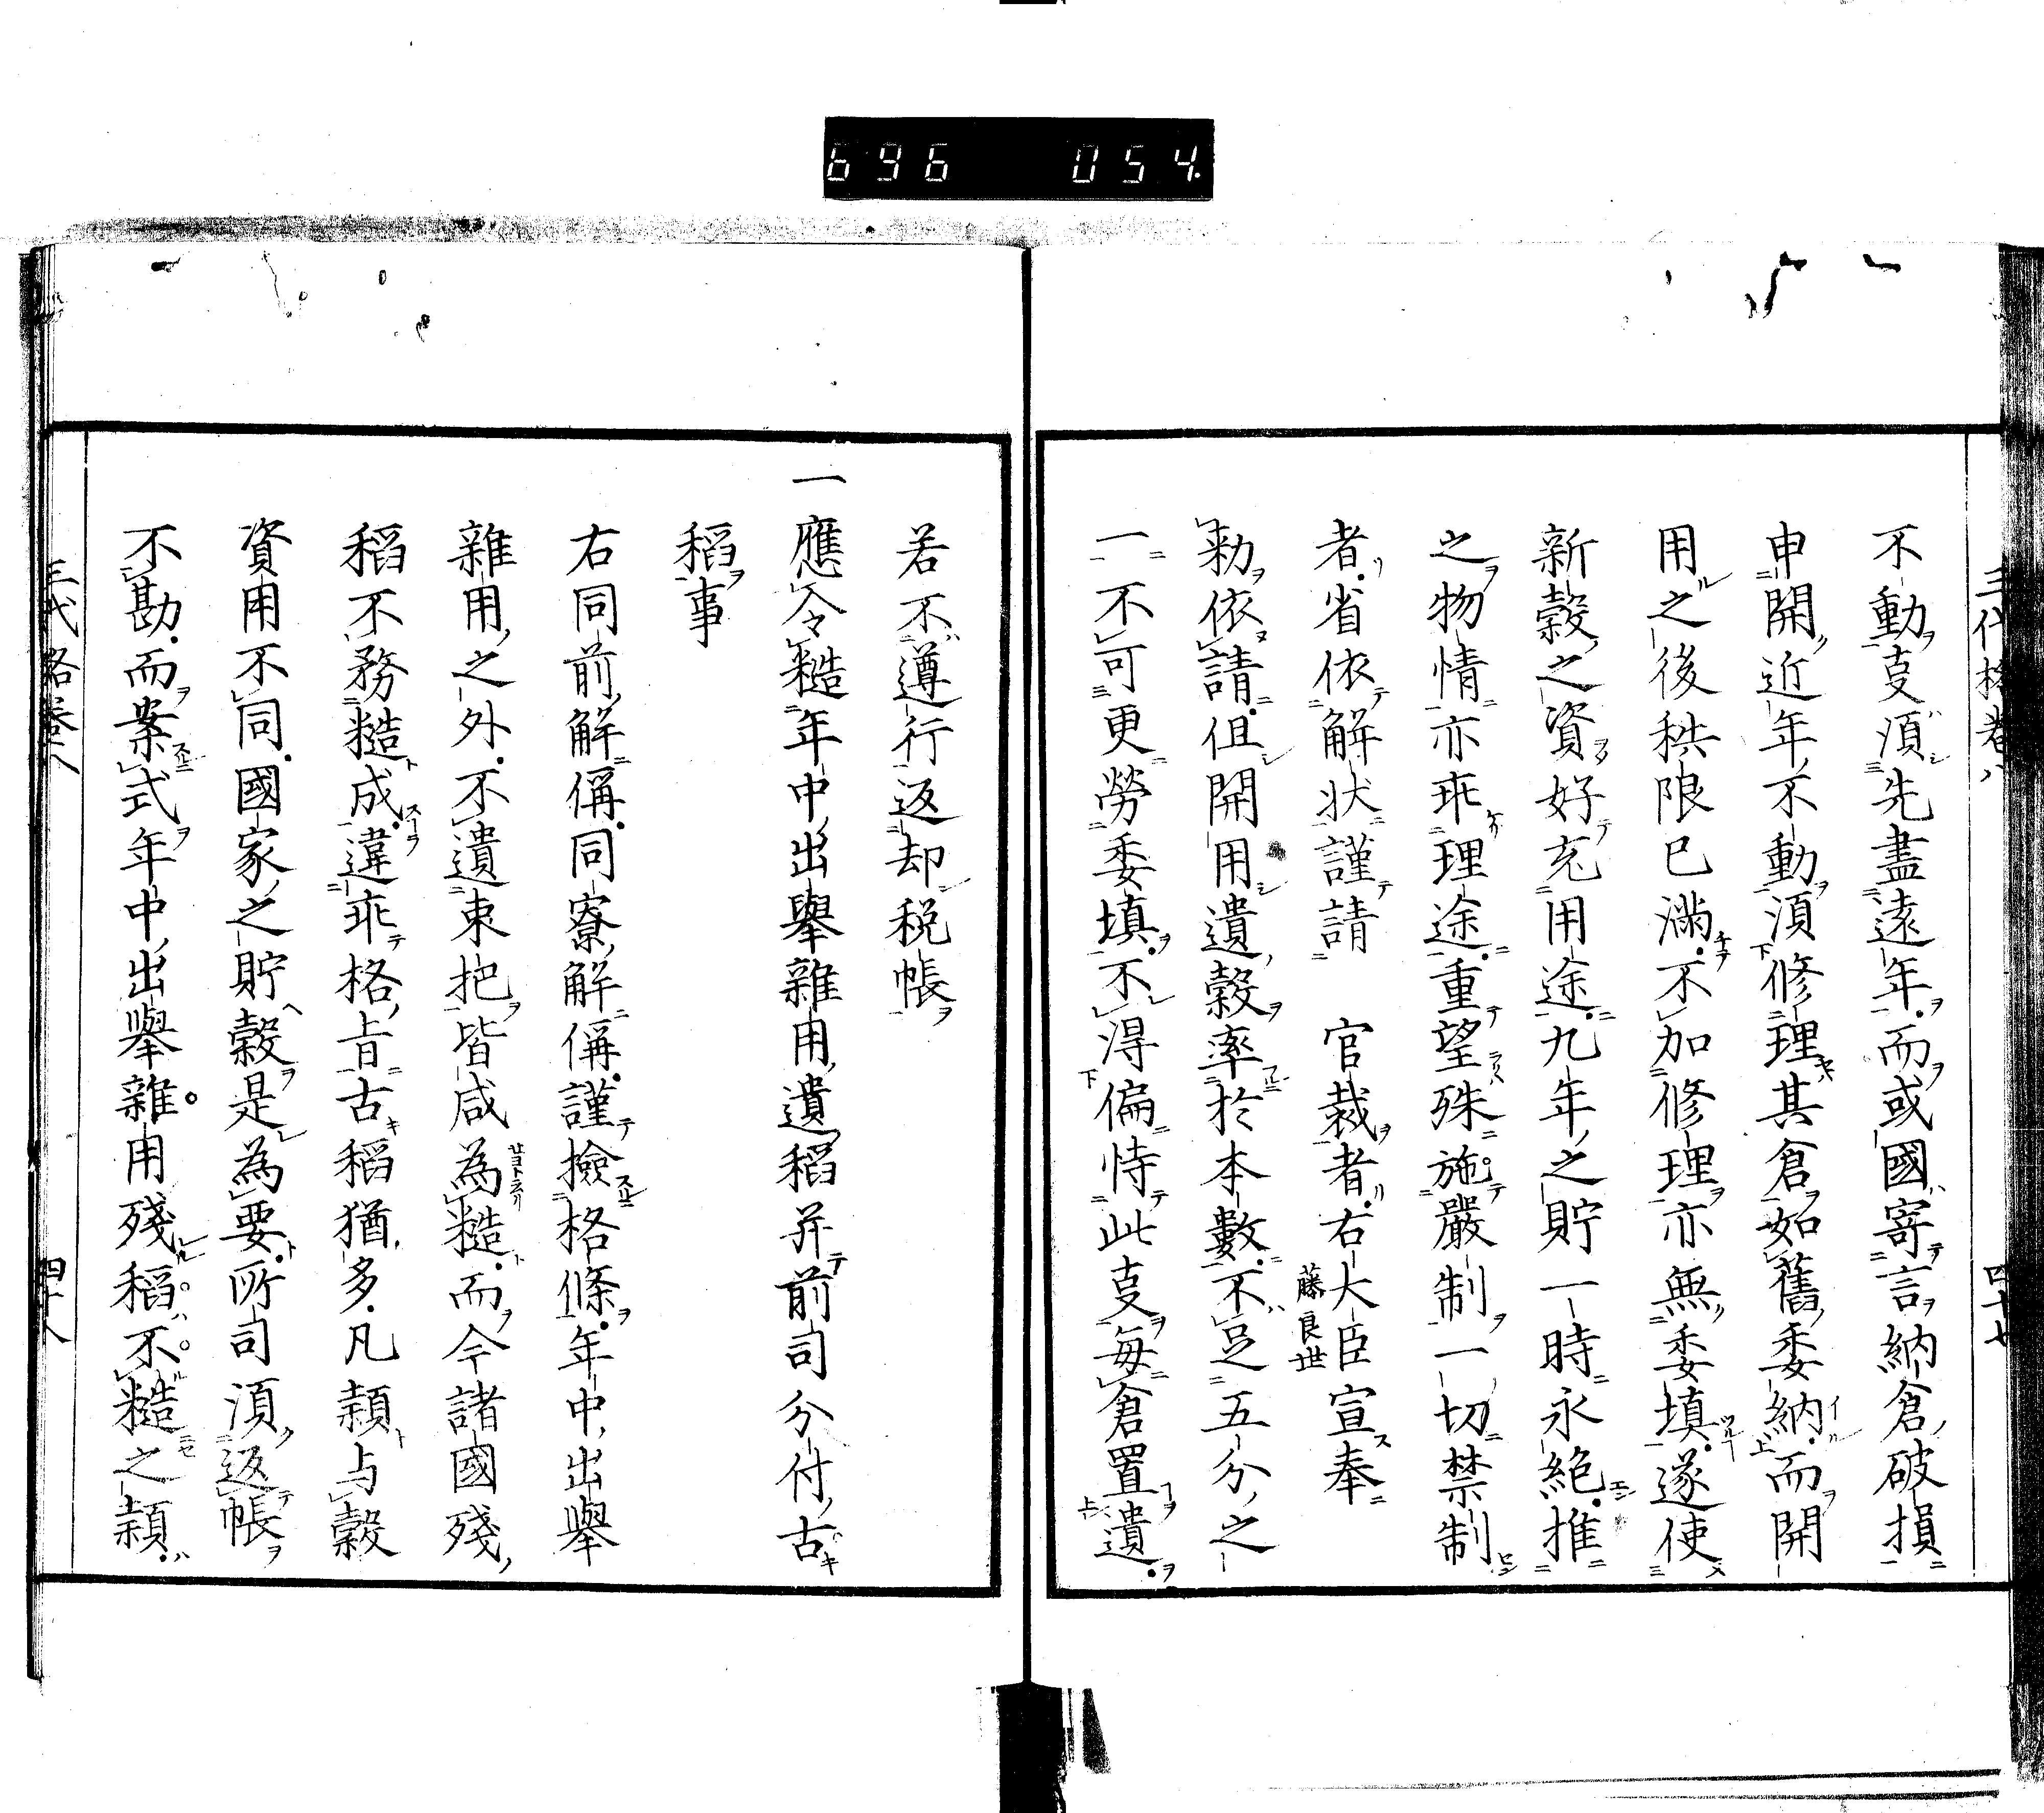 696 054
三代格卷八 四十七
不動事須先盡遠年而或國寄言納倉破損
申開近年不動須修理其倉如舊委納而開
用之後秩限已滿不加修理亦無委填遂使
新穀之資好充用途九年之貯一時永絕推
之物情亦乖理途重望殊施嚴制一切禁制
者省依解狀謹請 官裁者右大臣宣奉
藤良世
勅依請但開用遺穀率於本數不足五分之
一不可更勞委填不得偏恃此事每倉置遺
若不遵行返却稅帳
一應令糙年中出舉雜用遺稻并前司分付古
稻事
右同前解偁同寮解偁謹撿格條年中出舉
雜用之外不遺束把皆咸為糙而今諸國殘
稻不務糙成違乖格旨古稻猶多凡穎与穀
資用不同國家之貯穀是為要所司須返帳
不勘而案式年中出舉雜用殘稻不糙之穎
三代格卷八 四十八